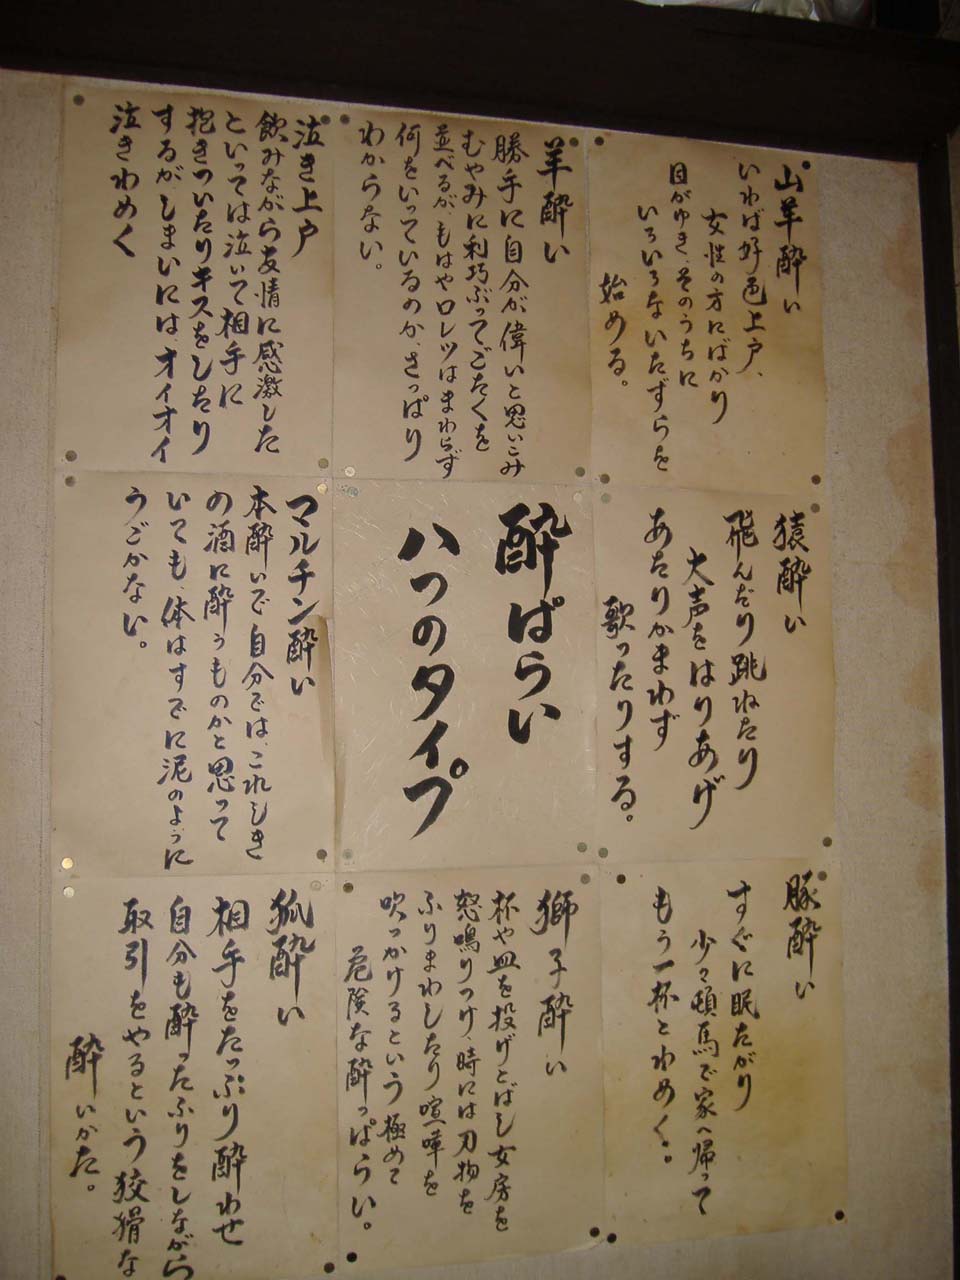 酔ぱらい
八つのタイプ
山羊酔い
いわば好色上戸、
女性の方にばかり
目がゆき、そのうちに
いろいろないたずらを
始める。
羊酔い
勝手に自分が偉いと思いこみ
むやみに利巧ぶって、ごたくを
並べるが、もはやロレツはまわらず
何をいっているのか、さっぱり
わからない。
泣き上戸
飲みながら友情に感激した
といっては泣いて相手に
抱きついたりキスをしたり
するが、しまいには、オイオイ
泣きわめく
猿酔い
飛んだり跳ねたり
大声をはりあげ
あたりかまわず
歌ったりする。
マルチン酔い
本酔いで自分では、これしき
の酒に酔うものかと思って
いても、体はすでに泥のように
うごかない。
豚酔い
すぐに眠たがり
少々頓馬で家へ帰って
もう一杯とわめく。
獅子酔い
杯や皿を投げとばし女房を
怒鳴りつけ、時には刃物を
ふりまわしたり喧嘩を
吹っかけるという極めて
危険な酔っぱらい。
狐酔い
相手をたっぷり酔わせ
自分も酔ったふりをしながら
取引をやるという狡猾な
酔いかた。